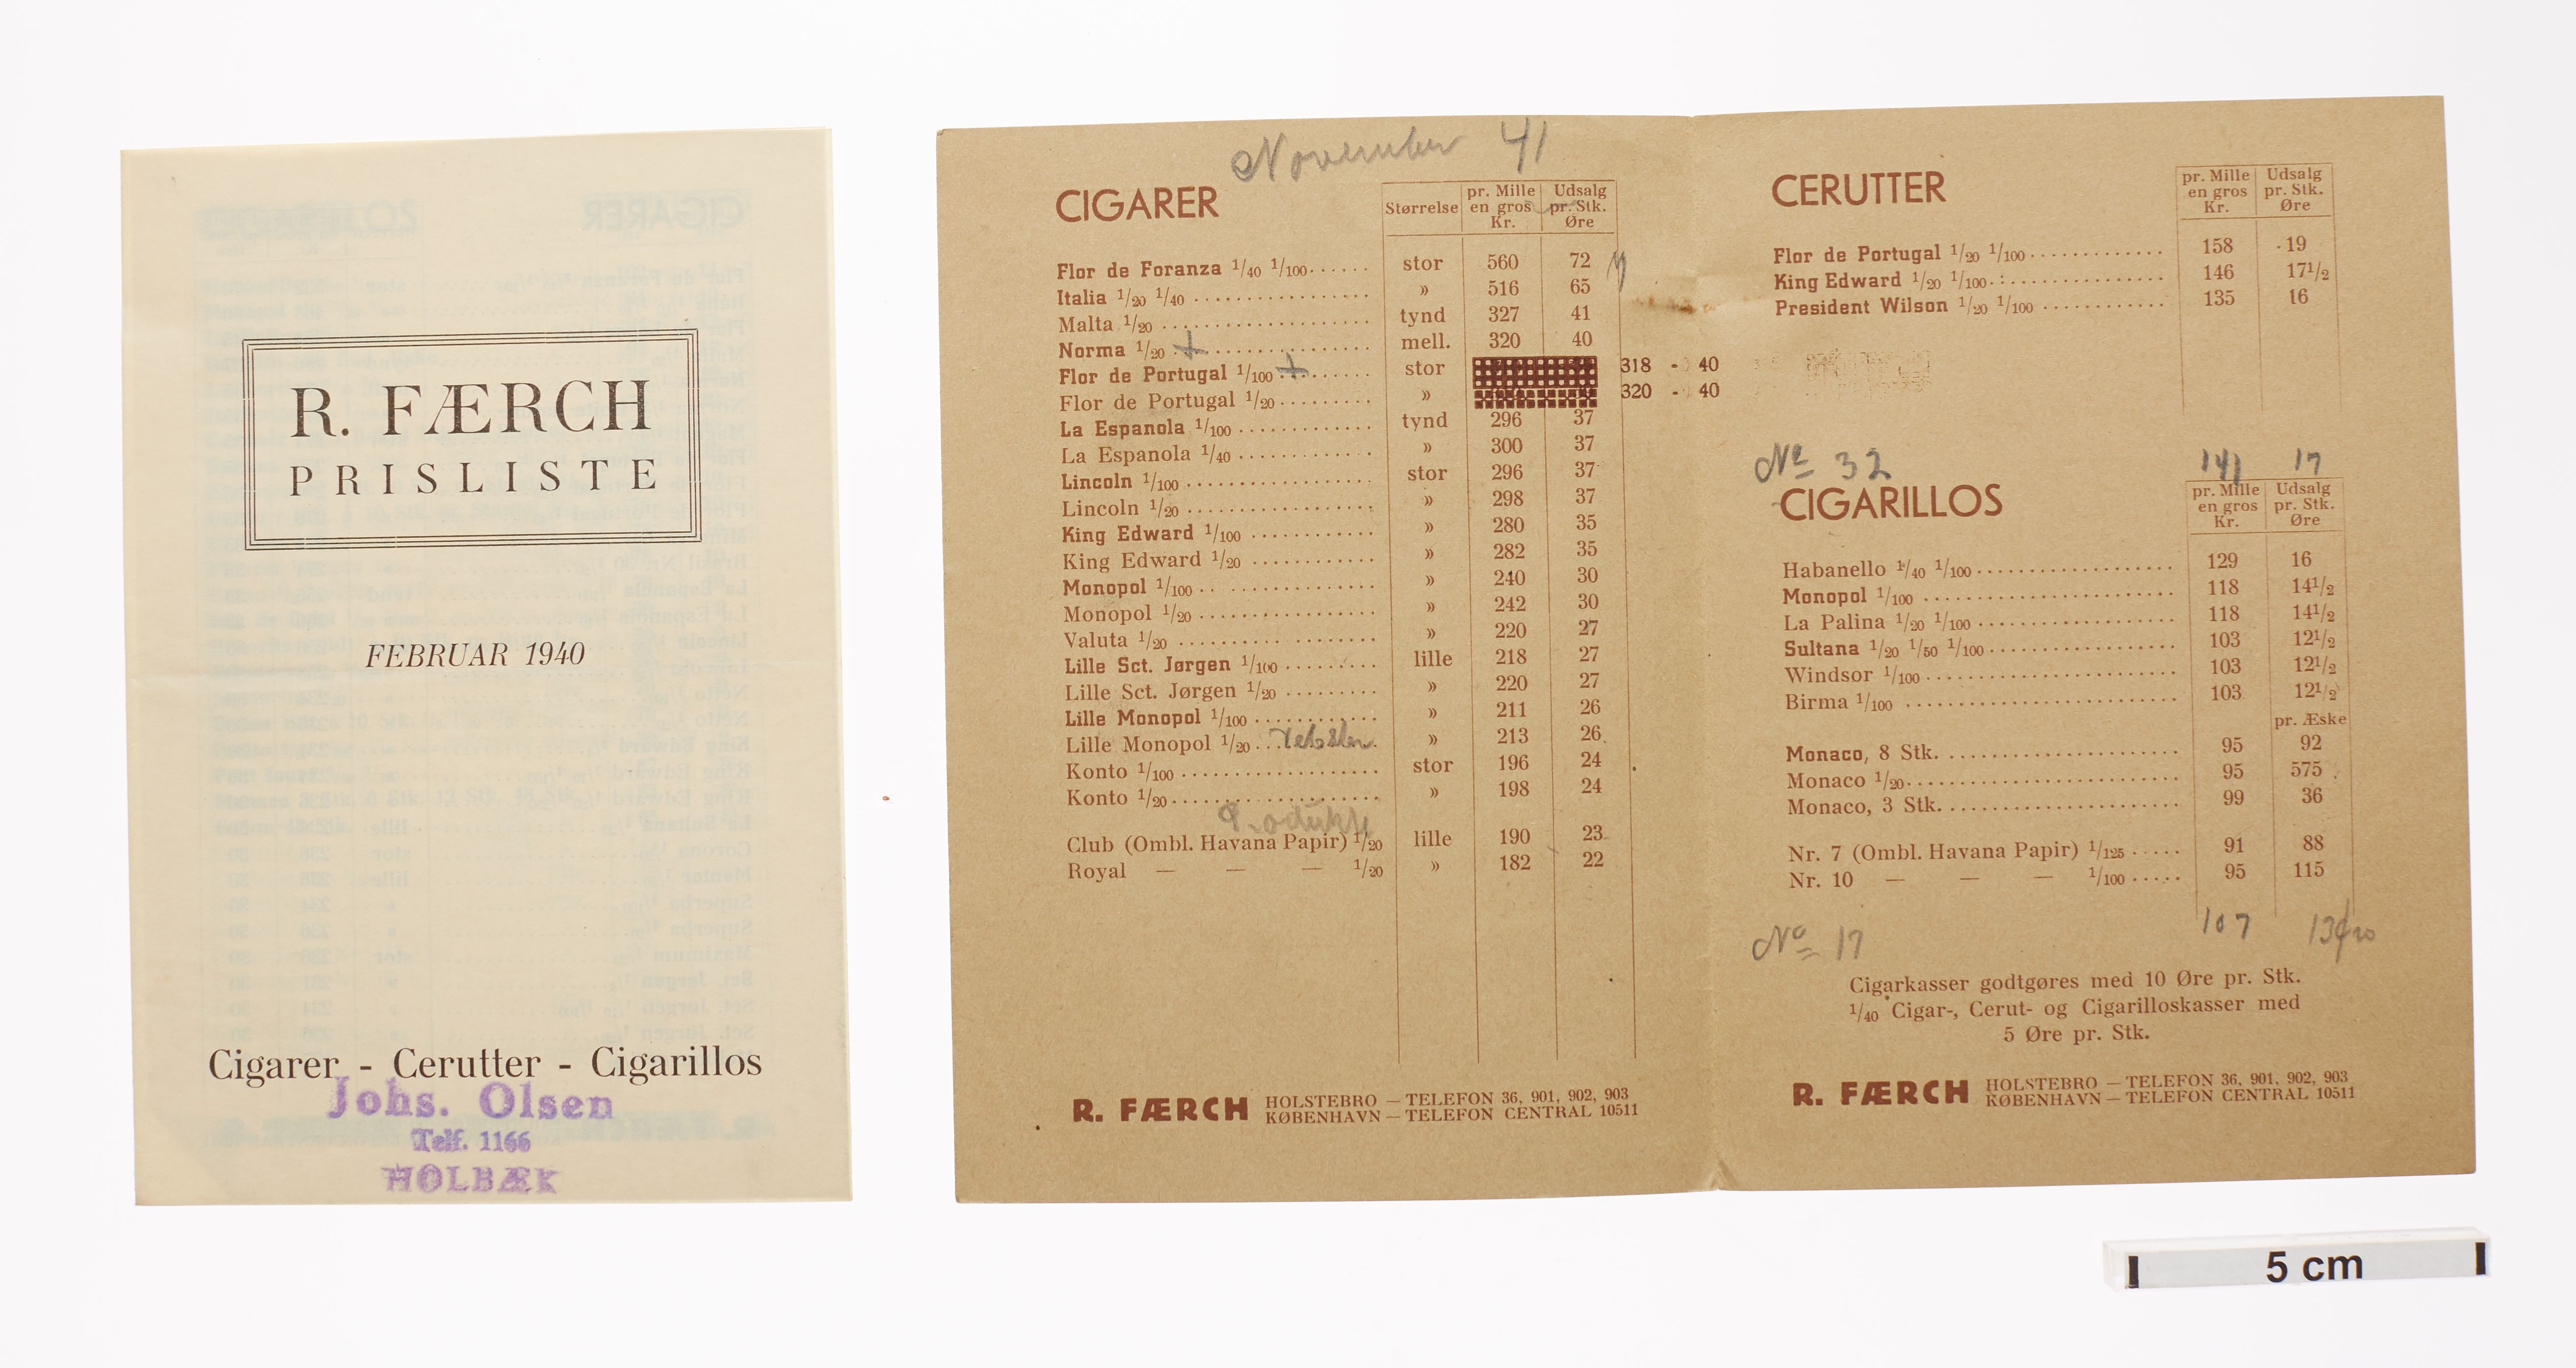 R. FÆRCH
PRISLISTE
FEBRUAR 1940
Cigarer - Cerutter - Cigarillos
Johs. Olsen
Telf. 1166
HOLBÆK
November 41
CIGARER
Størrelse pr. Mille en gros Kr. Udsalg pr. Stk. Øre
Flor de Foranza 1/40 1/100 ...... stor 560 72
Italia 1/20 1/40 ................ » 516 65
Malta 1/20 .................... tynd 327 41
Norma 1/20 + ................ mell. 320 40
Flor de Portugal 1/100 + ........ stor 318 - 40
Flor de Portugal 1/20 ......... » 320 - 40
La Espanola 1/100 ............. tynd 296 37
La Espanola 1/40 ............. » 300 37
Lincoln 1/100 .................. stor 296 37
Lincoln 1/20 .................. » 298 37
King Edward 1/100 ............ » 280 35
King Edward 1/20 ............ » 282 35
Monopol 1/100 ................. » 240 30
Monopol 1/20 .................. » 242 30
Valuta 1/20 ................... » 220 27
Lille Sct. Jørgen 1/100 ......... lille 218 27
Lille Sct. Jørgen 1/20 ......... » 220 27
Lille Monopol 1/100 ............ » 211 26
Lille Monopol 1/20 ... » 213 26
Konto 1/100 ................... stor 196 24
Konto 1/20 .................... » 198 24
Club (Ombl. Havana Papir) 1/20 lille 190 23
Royal — — — 1/20 » 182 22
R. FÆRCH HOLSTEBRO — TELEFON 36, 901, 902, 903
KØBENHAVN — TELEFON CENTRAL 10511
CERUTTER
pr. Mille en gros Kr. Udsalg pr. Stk. Øre
Flor de Portugal 1/20 1/100 ............. 158 19
King Edward 1/20 1/100 ................ 146 17 1/2
President Wilson 1/20 1/100 ............ 135 16
No 32 141 17
CIGARILLOS
pr. Mille en gros Kr. Udsalg pr. Stk. Øre
Habanello 1/40 1/100 ................... 129 16
Monopol 1/100 ........................ 118 14 1/2
La Palina 1/20 1/100 ................... 118 14 1/2
Sultana 1/20 1/50 1/100 ................. 103 12 1/2
Windsor 1/100 ........................ 103 12 1/2
Birma 1/100 .......................... 103 12 1/2
pr. Æske
Monaco, 8 Stk. ....................... 95 92
Monaco 1/20 .......................... 95 575
Monaco, 3 Stk. ....................... 99 36
Nr. 7 (Ombl. Havana Papir) 1/125 ..... 91 88
Nr. 10 — — — 1/100 ..... 95 115
No 17 107
Cigarkasser godtgøres med 10 Øre pr. Stk.
1/40 Cigar-, Cerut- og Cigarilloskasser med
5 Øre pr. Stk.
R. FÆRCH HOLSTEBRO — TELEFON 36, 901, 902, 903
KØBENHAVN — TELEFON CENTRAL 10511
5 cm